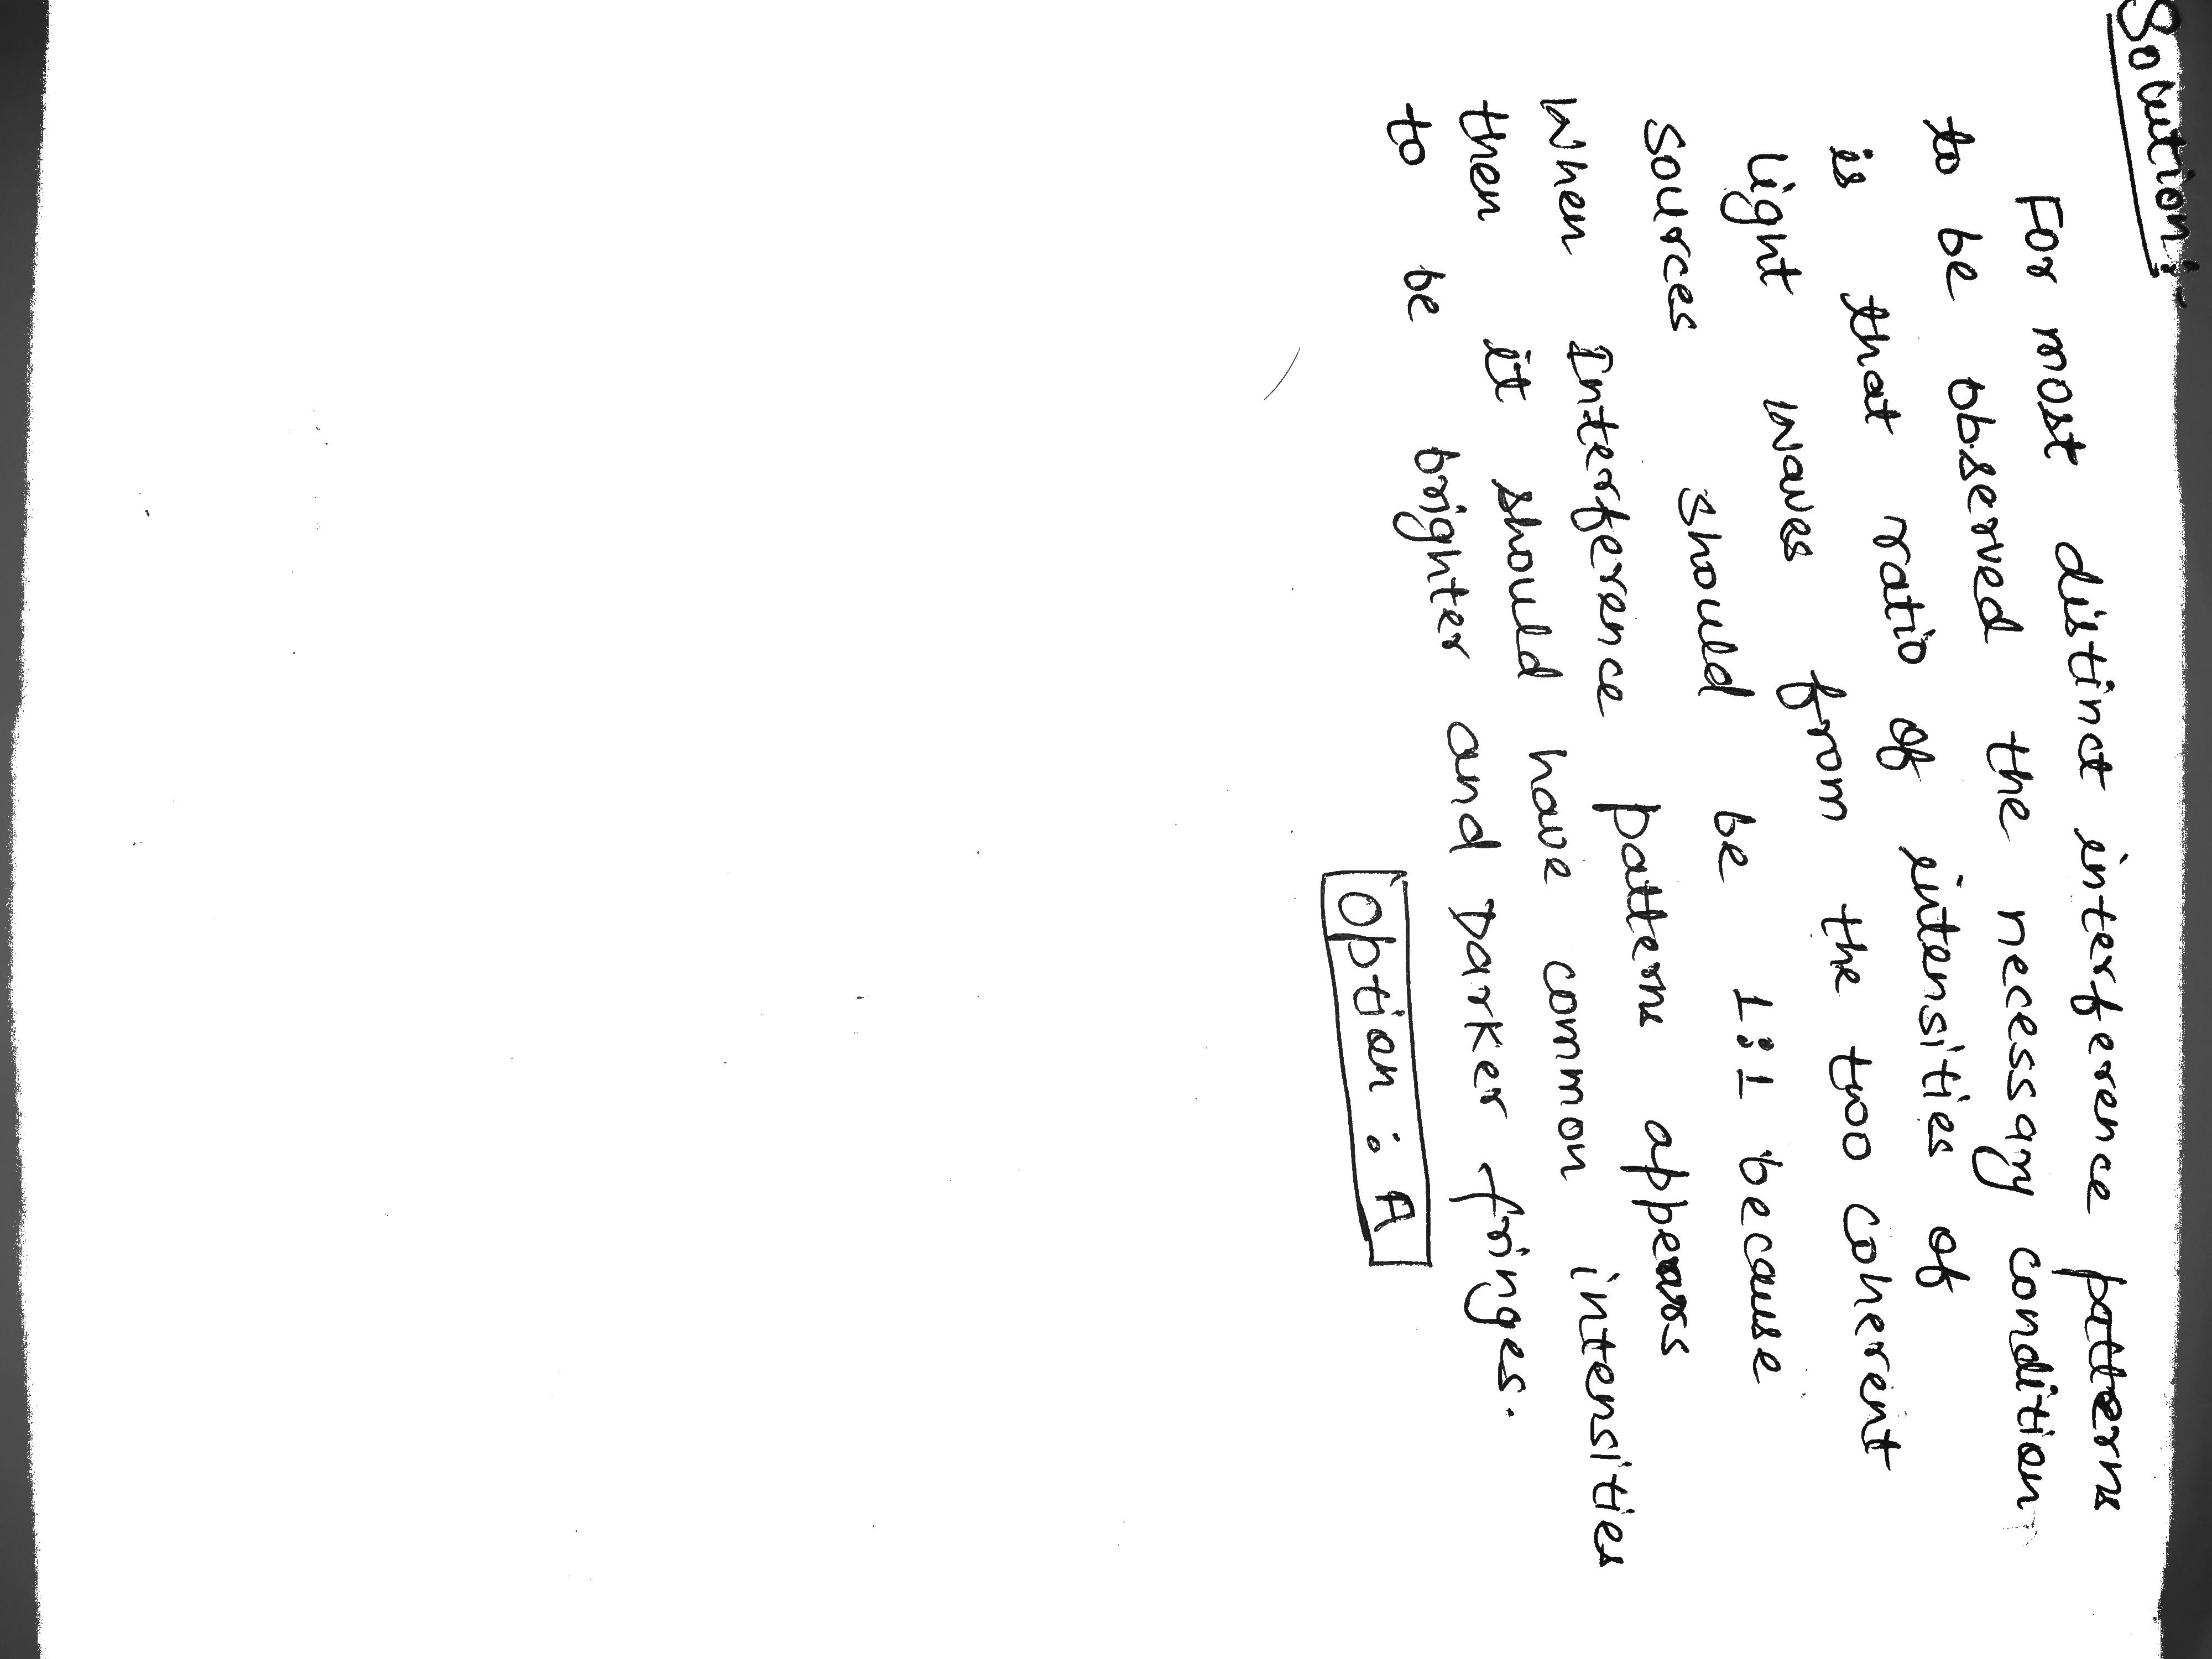 Solution:-
For most distinct interference pattern
to be observed the necessary condition
is that ratio of intensities of
light waves from the two coherent
sources should be 1:1 because
When Interference pattern appears
then it should have common intensities
to be brighter and Darker fringes.
Option : A